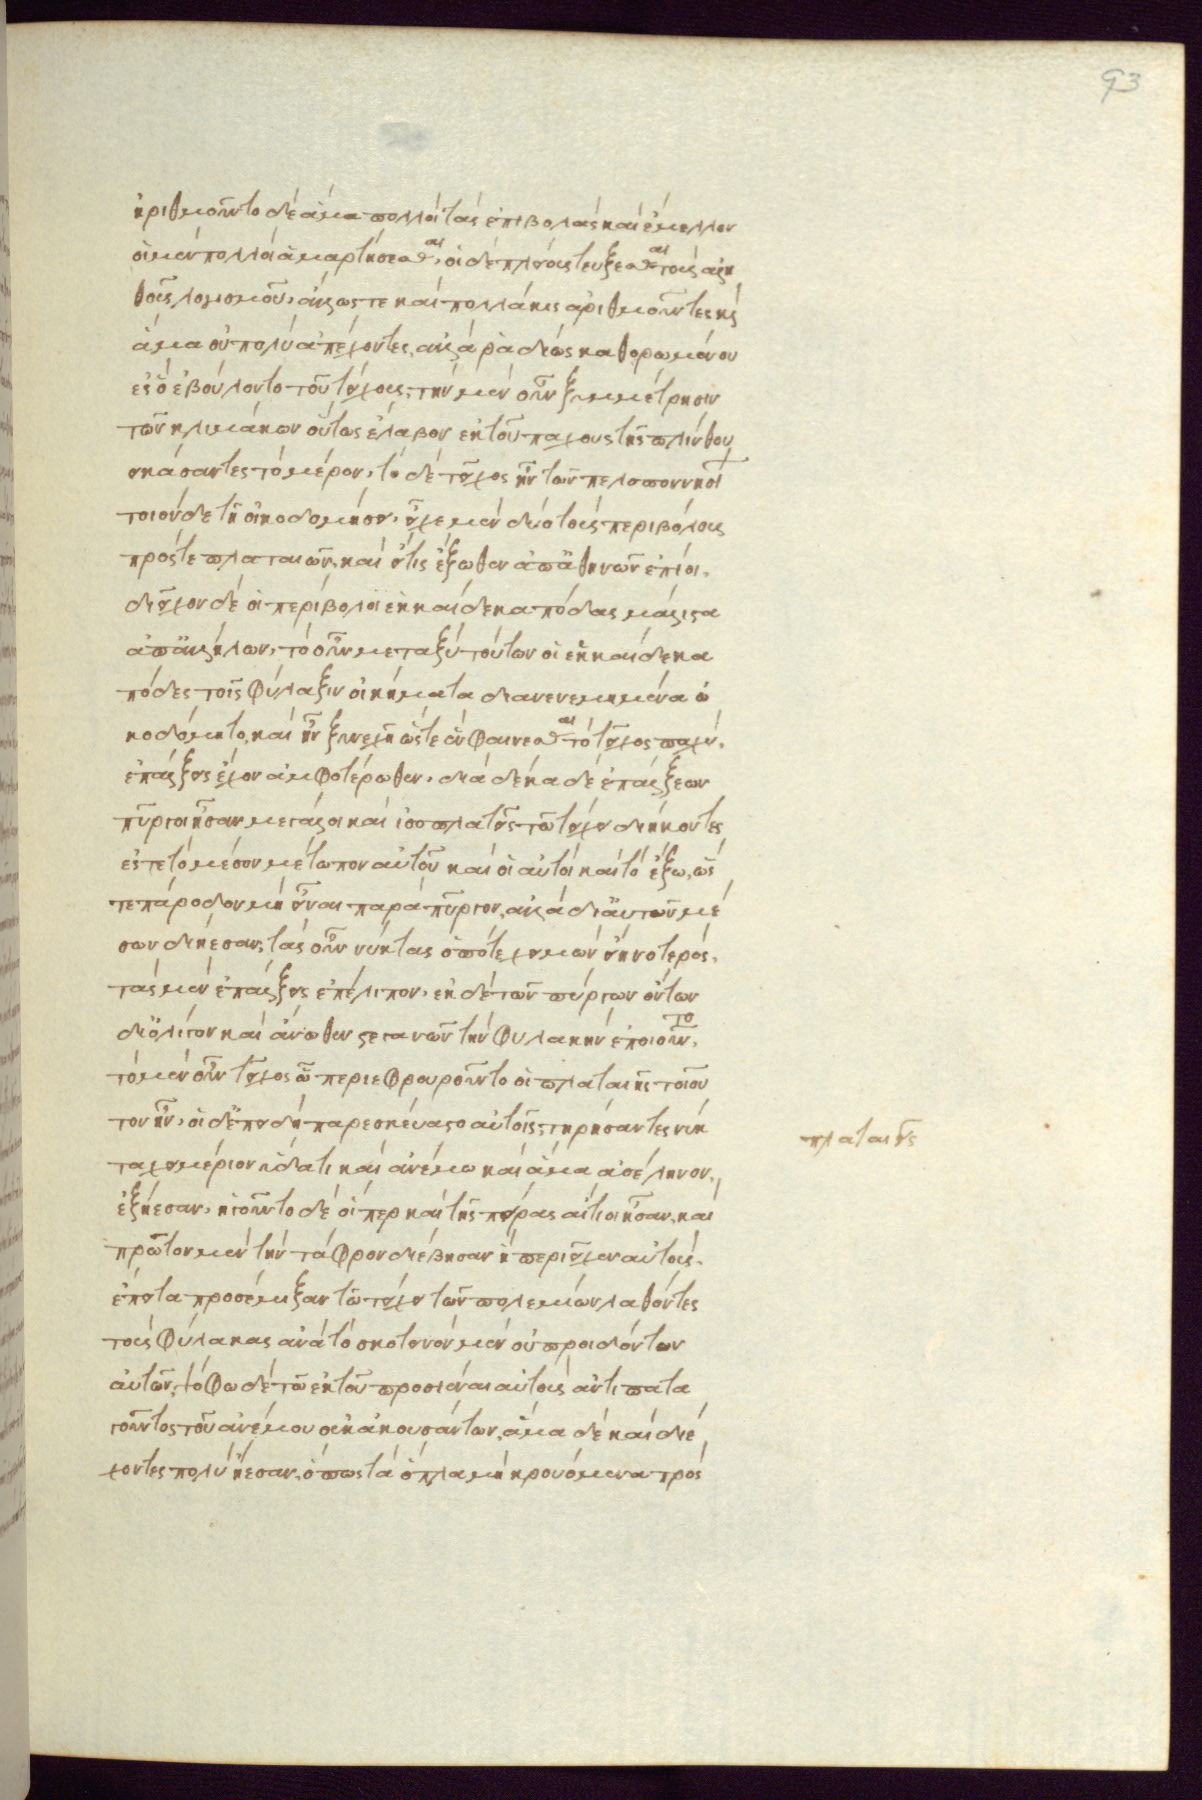 93
ἠριθμοῦντο δὲ ἅμα πολλοὶ τὰς ἐπιβολὰς καὶ ἔμελλον
οἱ μὲν πολλοὶ ἁμαρτήσεσθαι, οἱ δὲ πλείους τεύξεσθαι τοῦ ἀλη
θοῦς λογισμοῦ, ἄλλως τε καὶ πολλάκις ἀριθμοῦντες κ(αὶ)
ἅμα οὐ πολὺ ἀπέχοντες, ἀλλὰ ῥαδίως καθορωμένου
ἐς ὃ ἐβούλοντο τοῦ τείχους, τὴν μὲν οὖν ξυμμέτρησιν
τῶν κλιμάκων οὕτως ἔλαβον ἐκ τοῦ πάχους τῆς πλίνθου
εἰκάσαντες τὸ μέτρον, τὸ δὲ τεῖχος ἦν τῶν πελοποννησί(ων)
τοιόνδε τῇ οἰκοδομήσει, εἶχε μὲν δύο τοὺς περιβόλους
πρός τε πλαταιῶν, καὶ εἴ τις ἔξωθεν ἀπ' ἀθηνῶν ἐπίοι,
διεῖχον δὲ οἱ περίβολοι ἑκκαίδεκα πόδας μάλιστα
ἀπ' ἀλλήλων, τὸ οὖν μεταξὺ τούτων οἱ ἑκκαίδεκα
πόδες τοῖς φύλαξιν οἰκήματα διανενεμημένα ᾠ
κοδόμητο, καὶ ἦν ξυνεχῆ ὥστε ἓν φαίνεσθαι τὸ τεῖχος παχύ,
ἐπάλξεις ἔχον ἀμφοτέρωθεν, διὰ δέκα δὲ ἐπάλξεων
πύργοι ἦσαν μεγάλοι καὶ ἰσοπλατεῖς τῷ τείχει διήκοντες
ἔς τε τὸ μέσον μέτωπον αὐτοῦ καὶ οἱ αὐτοὶ καὶ τὸ ἔξω, ὥς
τε πάροδον μὴ εἶναι παρὰ πύργον, ἀλλὰ δι' αὐτῶν μέ
σων διῄεσαν, τὰς οὖν νύκτας ὁπότε χειμὼν εἴη νοτερός,
τὰς μὲν ἐπάλξεις ἐπέλιπον, ἐκ δὲ τῶν πύργων ὄντων
δι' ὀλίγου καὶ ἄνωθεν στεγανῶν τὴν φυλακὴν ἐποιοῦντο,
τὸ μὲν οὖν τεῖχος ᾧ περιεφρουροῦντο οἱ πλαταιῆς τοιοῦ
τον ἦν, οἱ δ' ἐπειδὴ παρεσκεύαστο αὐτοῖς, τηρήσαντες νύκ
τα χειμέριον ὕδατι καὶ ἀνέμῳ καὶ ἅμα ἀσέληνον,
ἐξῄεσαν, ἡγοῦντο δὲ οἵπερ καὶ τῆς πείρας αἴτιοι ἦσαν, καὶ
πρῶτον μὲν τὴν τάφρον διέβησαν ἣ περιεῖχεν αὐτούς,
ἔπειτα προσέμιξαν τῷ τείχει τῶν πολεμίων λαθόντες
τοὺς φύλακας ἀνὰ τὸ σκοτεινὸν μὲν οὐ προϊδόντων
αὐτῶν, ψόφῳ δὲ τῷ ἐκ τοῦ προσιέναι αὐτοὺς ἀντιπατα
γοῦντος τοῦ ἀνέμου οὐ κατακουσάντων, ἅμα δὲ καὶ διέ
χοντες πολὺ ᾔεσαν, ὅπως τὰ ὅπλα μὴ κρουόμενα πρὸς
πλαταιεῖς